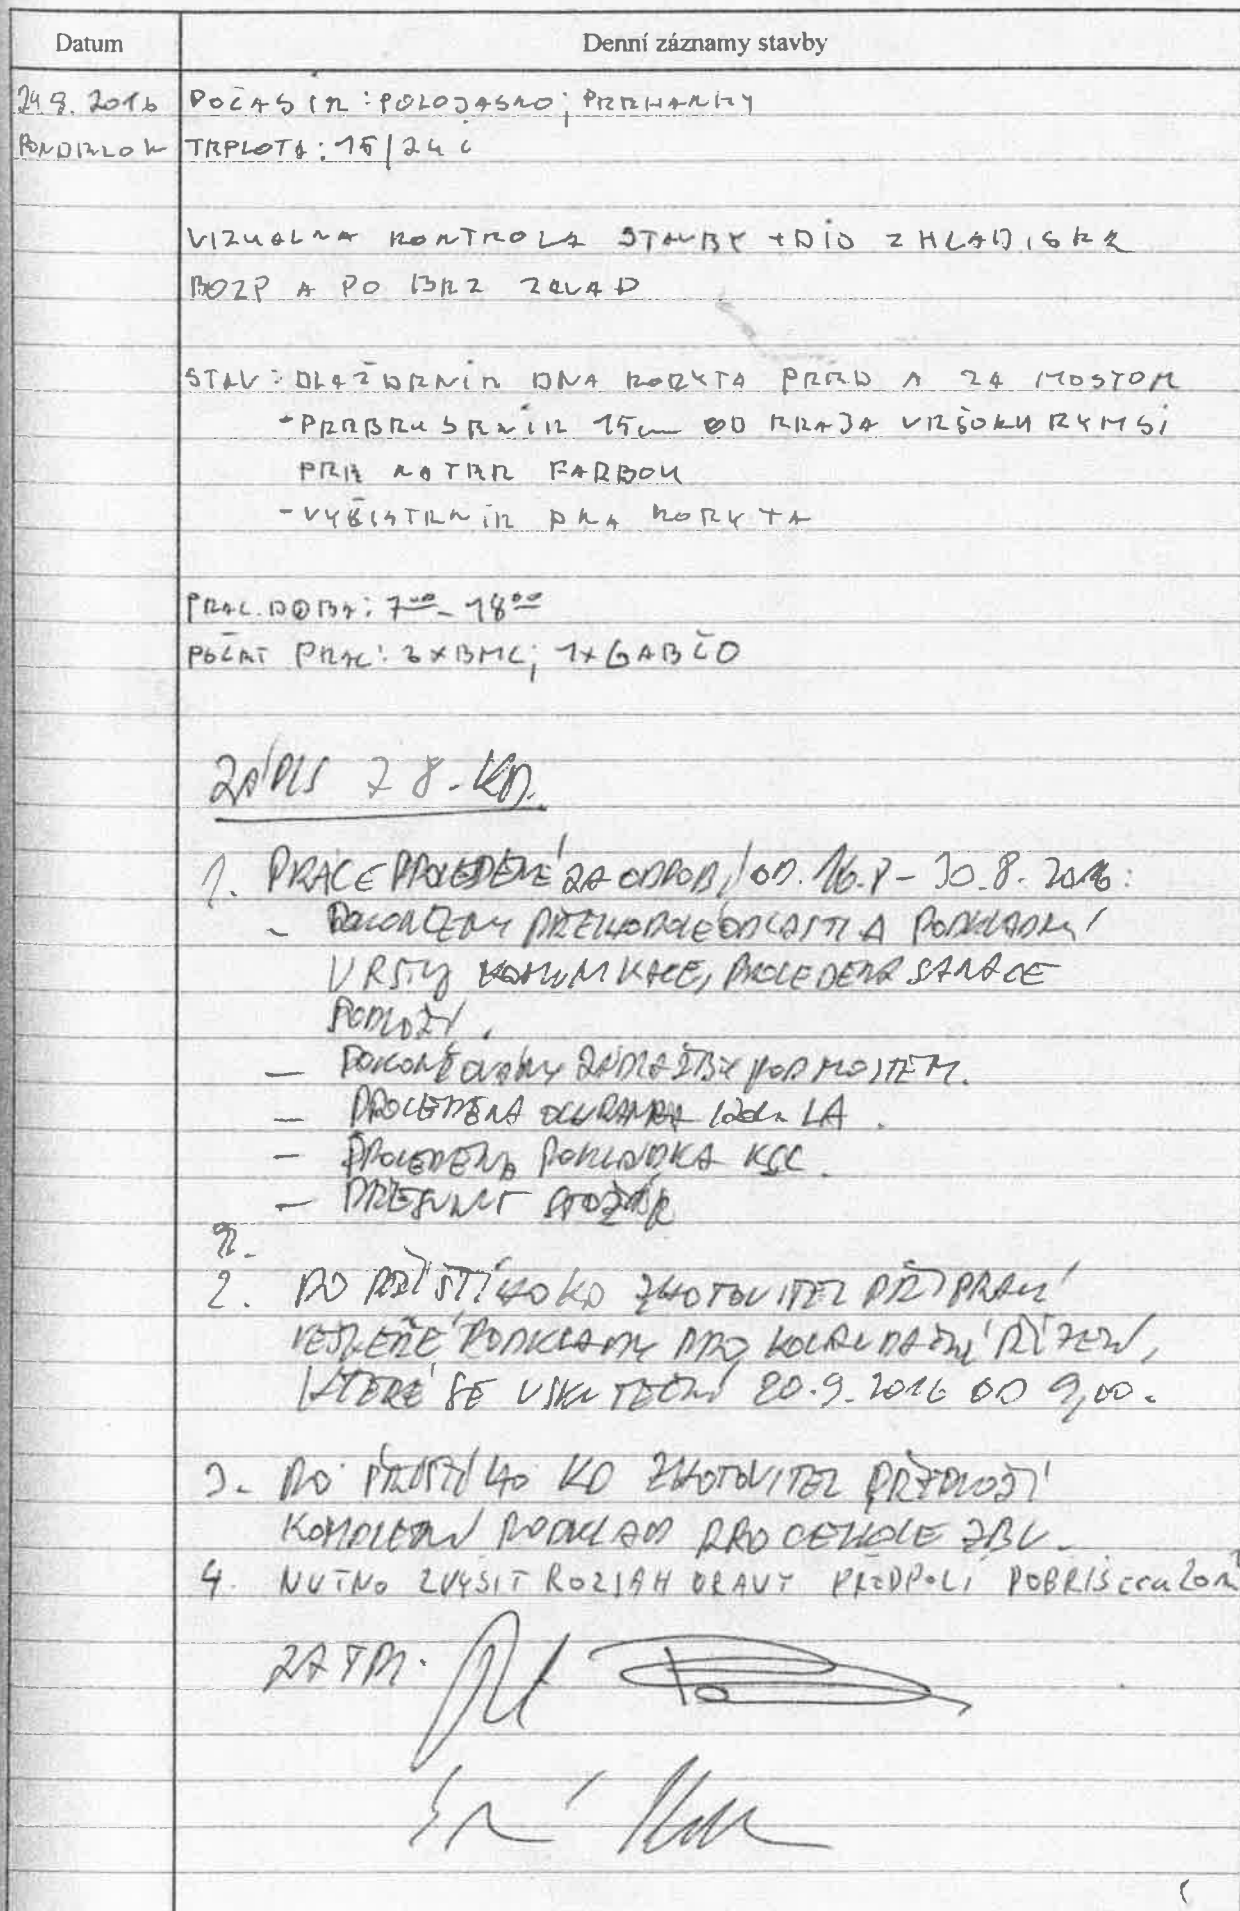 Datum
Denní záznamy stavby
29.8. 2016 POČASIE: POLOJASNO; PREHANKY
PONDELOK TEPLOTA: 15/24 C
VIZUALNA KONTROLA STAVBY + DIO Z HLADISKA
BOZP A PO BEZ ZAVAD
STAV: DLAŽDENIE DNA KORYTA PRED A ZA MOSTOM
- PREBRUSENIE 15cm OD KRAJA VRŠOKU RYMSI
PRE NATER FARBOU
- VYČISTENIE DNA KORYTA
PRAC. DOBA: 7⁰⁰ - 18⁰⁰
POČET PRAC: 3xBMC; 1xGABČO
ZÁPIS Z 8. KD.
1. PRÁCE PROVEDENÉ ZA OBDOBÍ OD. 16.8 - 30.8. 2016:
- DOKONČENY PŘECHODOVÉ OBLASTI A PODKLADNÍ
VRSTVY KOMUNIKACE, PROVEDENA SANACE
PODLOŽÍ.
- DOKONČOVÁNY ZÁDLAŽBY POD MOSTEM.
- PROVEDENA LA.
- PROVEDENA POKLÁDKA KSC.
- PŘESUNUT STOŽÁR
2. DO PŘÍŠTÍHO KD ZHOTOVITEL PŘIPRAVÍ
VEŠKERÉ PODKLADY PRO KOLAUDAČNÍ ŘÍZENÍ,
KTERÉ SE USKUTEČNÍ 20.9.2016 OD 9,00.
3. DO PŘÍŠTÍHO KD ZHOTOVITEL PŘEDLOŽÍ
KOMPLETNÍ PODKLADY PRO CELKOVÉ ZBV.
4. NUTNO ZVÝŠIT ROZSAH ÚPRAVY PŘEDPOLÍ
ZA